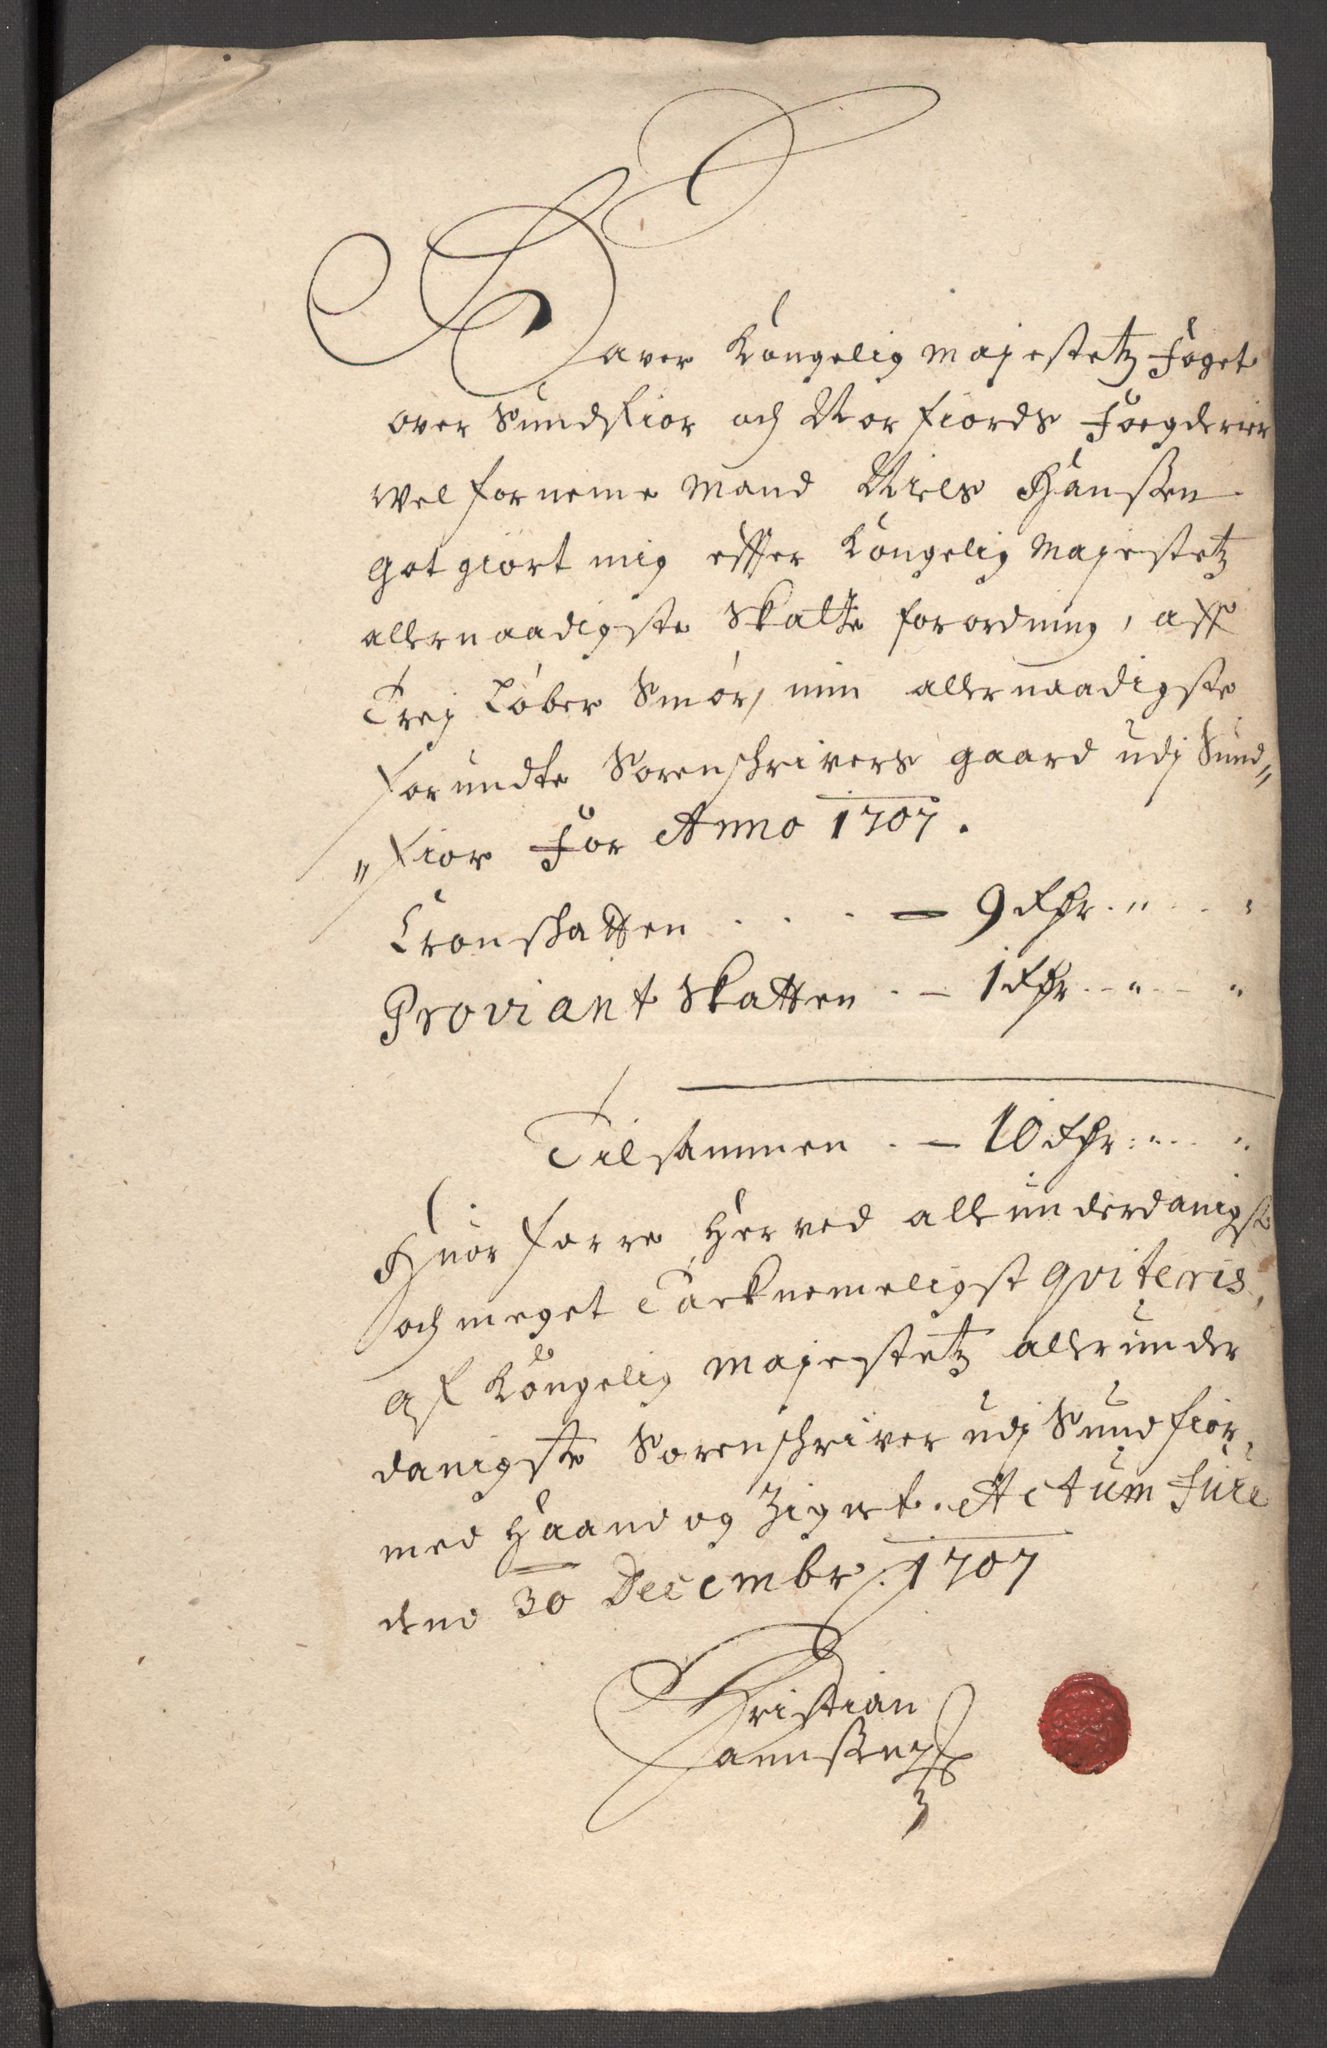 Haver Kongelig Majestetz Foget
over Sundfior och Nor fiords Foegderier
Velforneme Mand Niels Hanssen
got giort mig effter Kongelig Majestetz
allernaadigste Skatte forordning, aff
Trej Løber Smør, min allernaadigste
forundte Sorenschrivers gaard udj Sund„
„fior For Anno 1707.
Cronschatten . . . — 9 dlr. „ . . „
Proviant Skatten . — 1 dlr. . „ . „
Tilsammen . — 10 dlr: „ . . „
Huor forre Herved allunderdanigst
och meget Tacknemeligst qviteris,
af Kongelig Majestetz allerunder
danigste Sorenschriver udj Sundfior,
med Haand og Zignet. Actum Fure
dend 30 Decembr. 1707
Christian
Jannssen